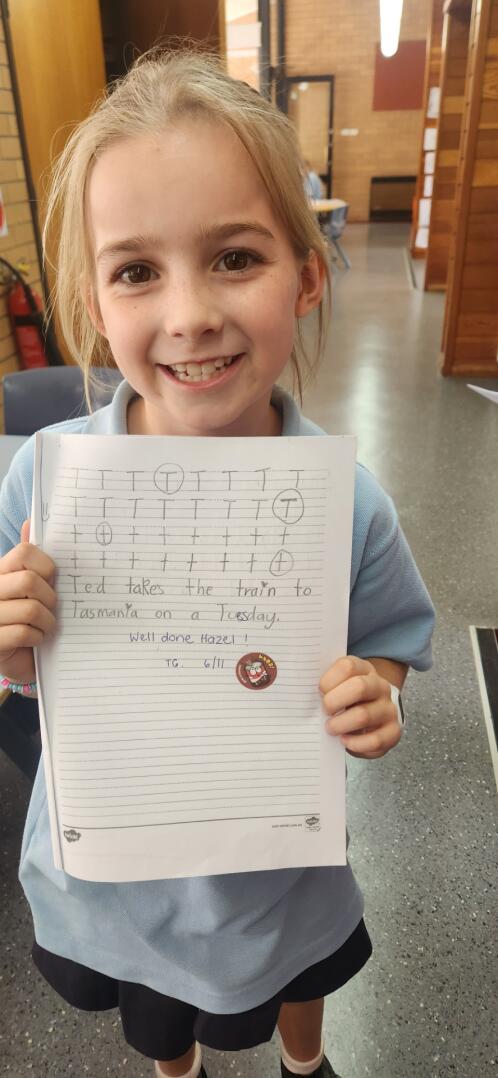 T T T T T T T T
T T T T T T T T
t t t t t t t t
t t t t t t t t
Ted takes the train to
Tasmania on a Tuesday.
Well done Hazel !
TG. 6/11